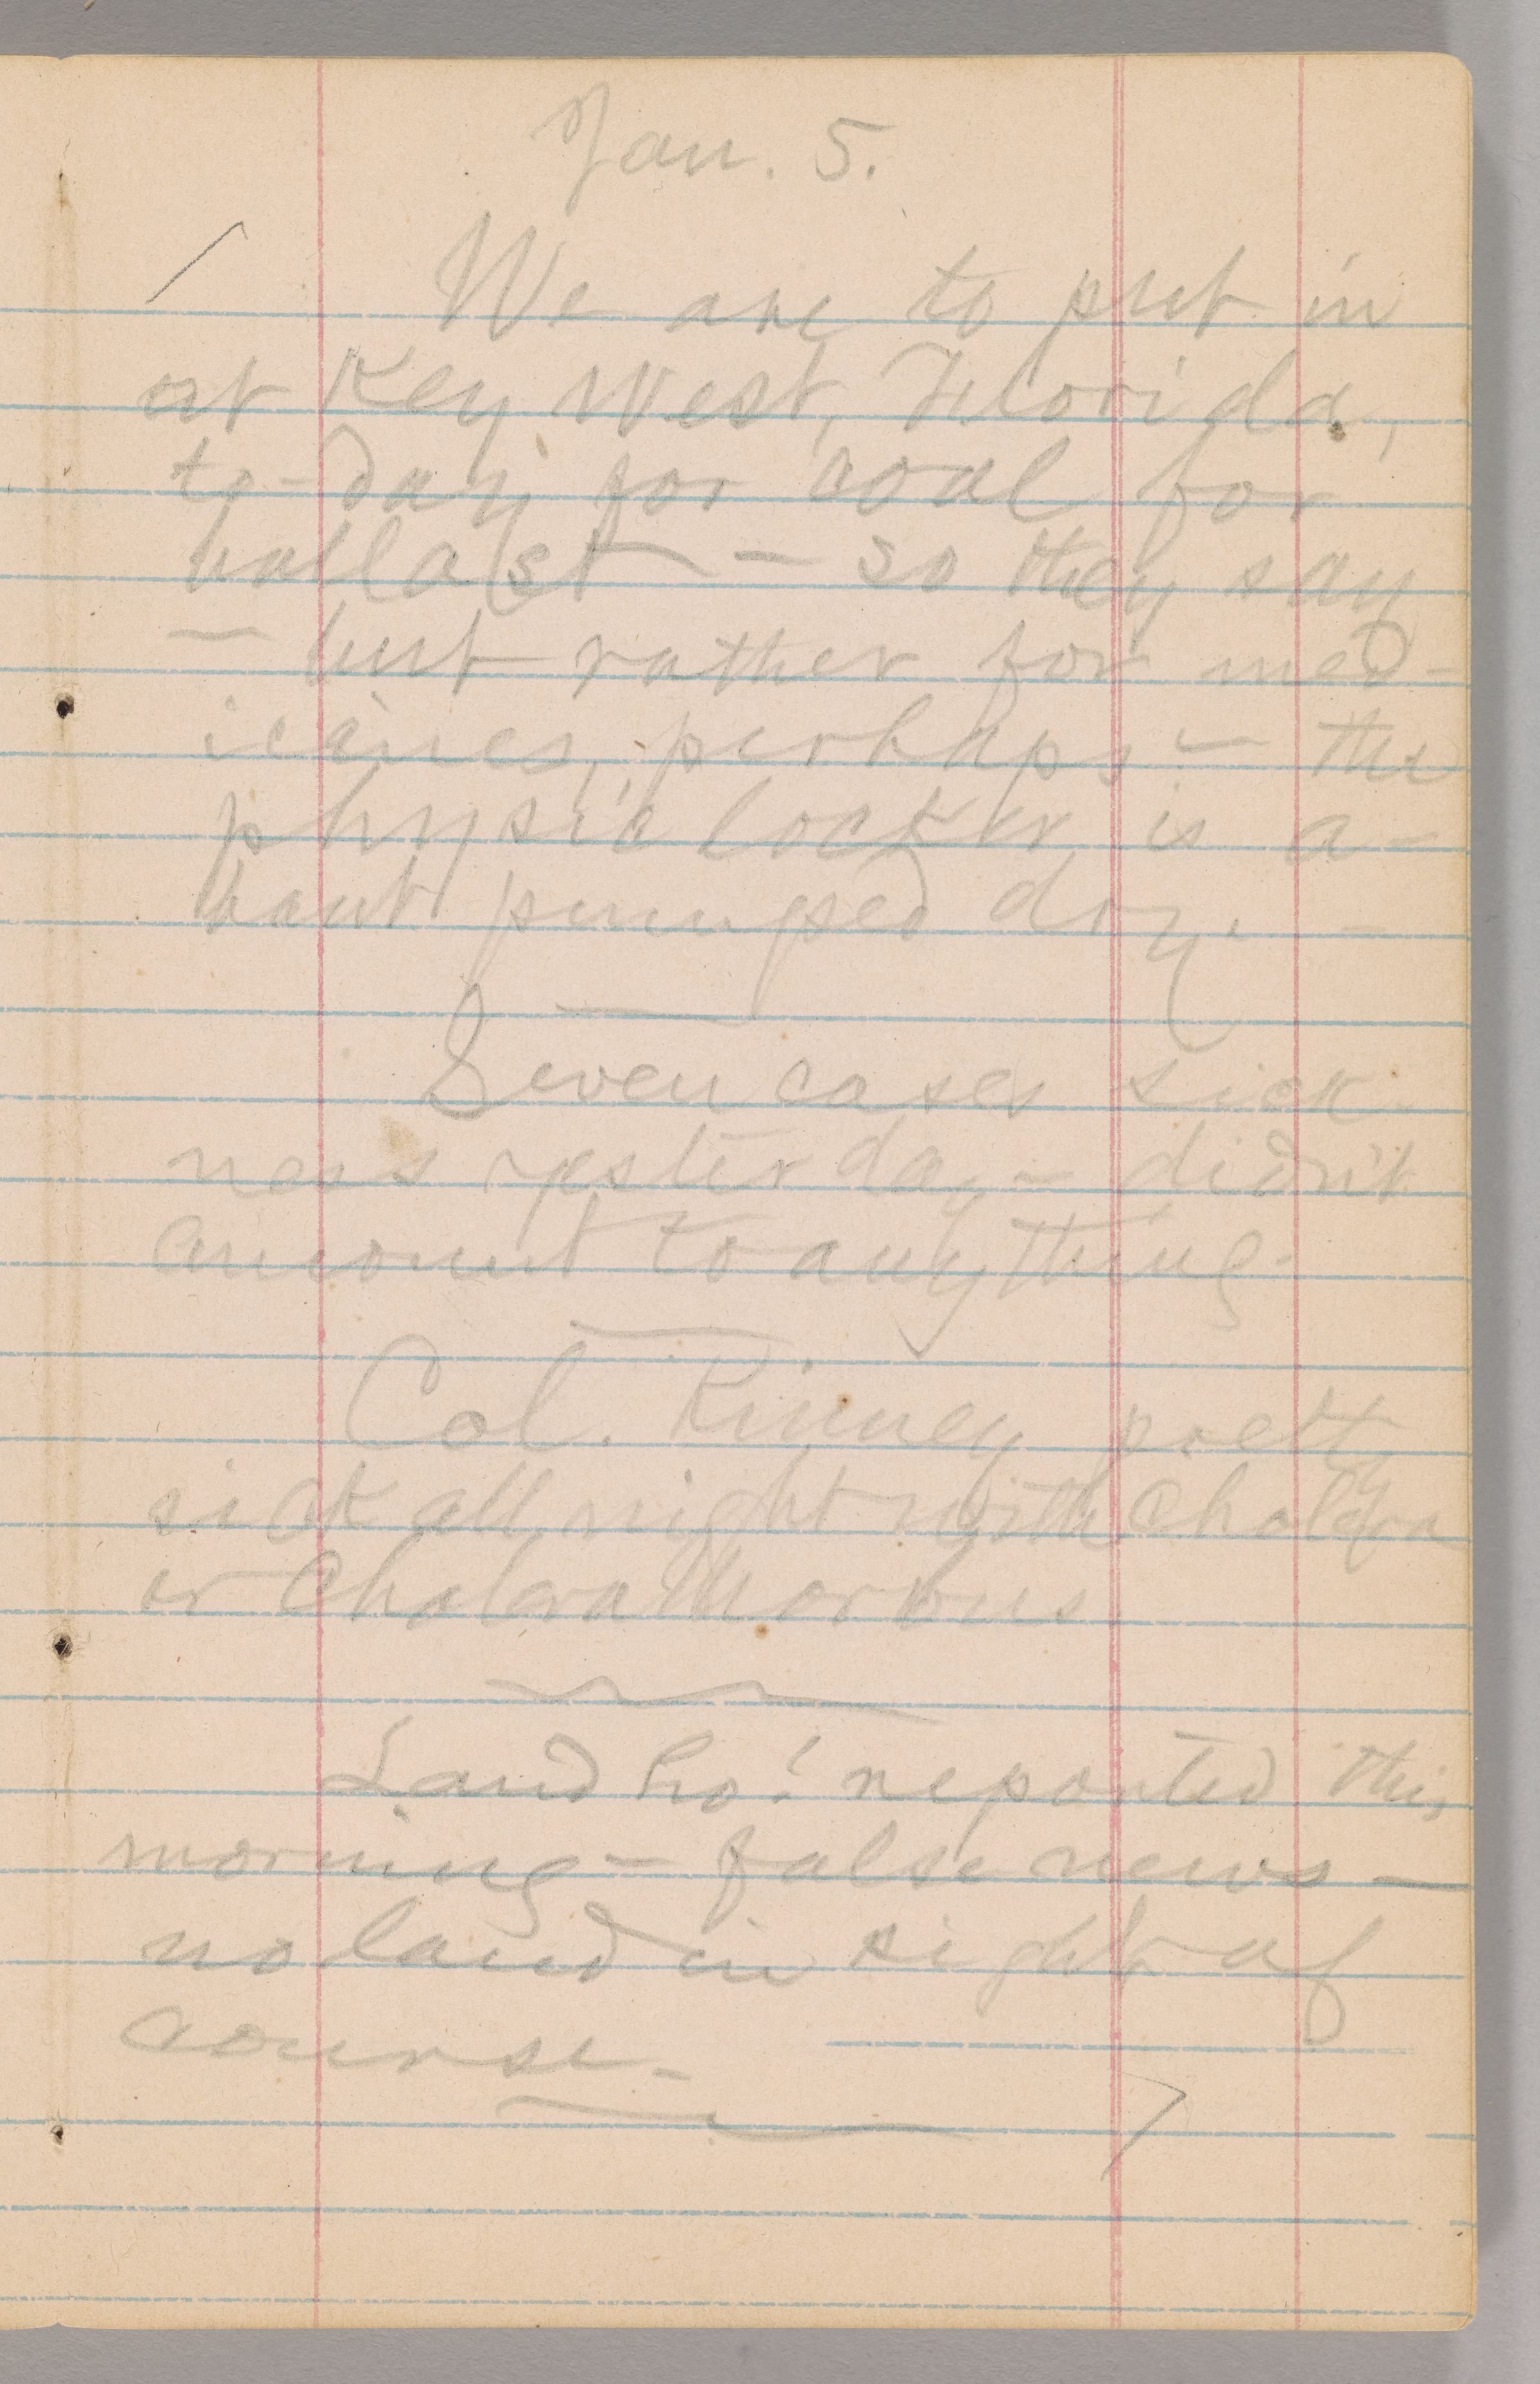 Jan. 5.
We are to put in
at Key West, Florida,
to-day for coal for
ballast — so they say
— but rather for med-
icines, perhaps — the
physic locker is a-
bout pumped dry. —
Seven cases sick
ness yesterday — didn't
amount to anything.
Col. Kinney pretty
sick all night with Cholera
or Cholera Morbus
Land ho! reported this
morning — false news —
no land in sight of
course.